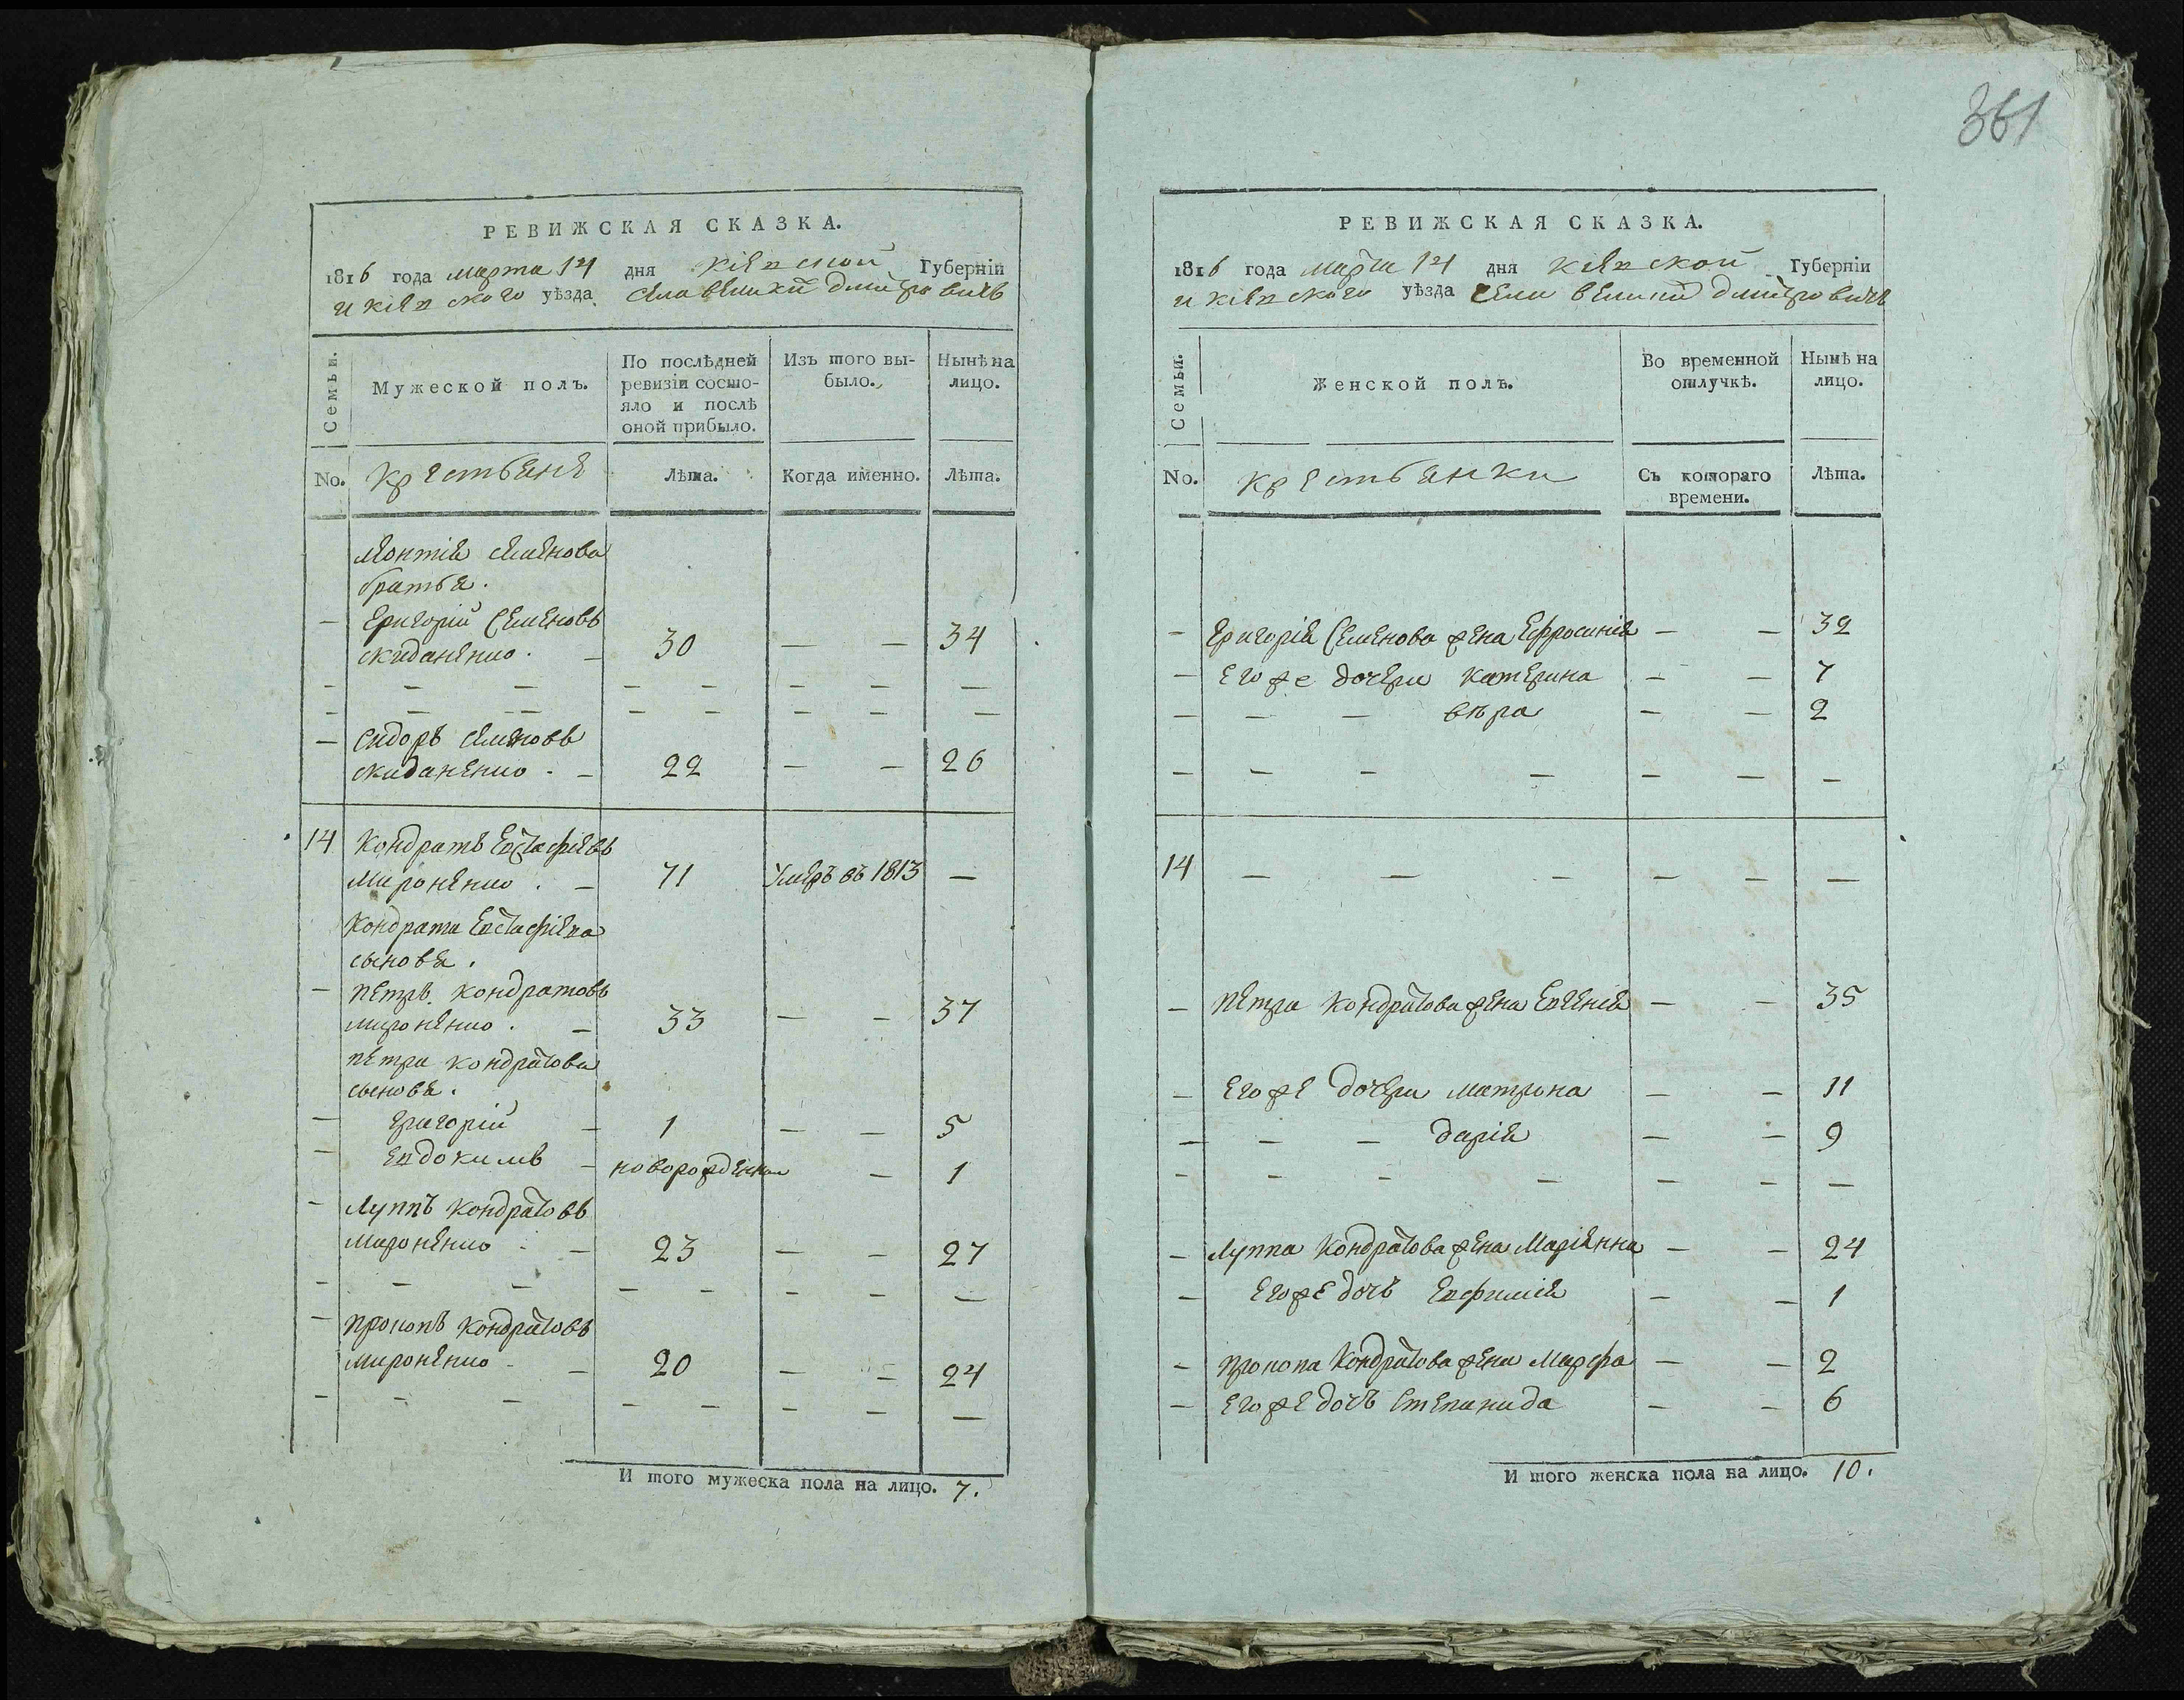 361
РЕВИЖСКАЯ СКАЗКА.
1816 года марта 14 дня Кіевской Губерніи
и Кіевского уѣзда села Великий Дмитровичь
Семьи.
Мужеской полъ.
По послѣдней
ревизіи состо-
яло и послѣ
оной прибыло.
Изъ того вы-
было.
Нынѣ на
лицо.
No. Крестьяне Лѣта. Когда именно. Лѣта.
Леонтія Семенова
братья.
— Григорій Семеновъ
Скиданенко. — 30 — — 34
— — — — — — — —
— — — — — — — —
— Сидоръ Семеновъ
Скиданенко. — 22 — — 26
14 Кондратъ Евстафіевъ
Мироненко. — 71 Умеръ въ 1813 —
Кондрата Евстафіева
сыновя.
— Петръ Кондратовъ
Мироненко. — 33 — — 37
Петра Кондратова
сыновя.
— Григорій — 1 — — 5
— Евдокимъ — новорожденный — 1
— Луппъ Кондратовъ
Мироненко. — 23 — — 27
— — — — — — — —
— Прокопъ Кондратовъ
Мироненко — 20 — — 24
— — — — — — — —
И того мужеска пола на лицо. 7.
РЕВИЖСКАЯ СКАЗКА.
1816 года марта 14 дня Кіевской Губерніи
и Кіевского уѣзда села Великий Дмитровичь
Семьи.
Женской полъ.
Во временной
отлучкѣ.
Нынѣ на
лицо.
No. Крестьянки Съ котораго
времени. Лѣта.
— Григорія Семенова жена Ефросинія — — 32
— Его же дочери Катерина — — 7
— — — вѣра — — 2
— — — — — — —
14 — — — — — —
— Петра Кондратова жена Евгенія — — 35
— Его же дочери Матрона — — 11
— — — Дарія — — 9
— — — — — — —
— Луппа Кондратова жена Маріянна — — 24
— Его же дочь Евфимія — — 1
— Прокопа Кондратова жена Марфа — — 2
— Его же дочь Степанида — — 6
И того женска пола на лицо. 10.